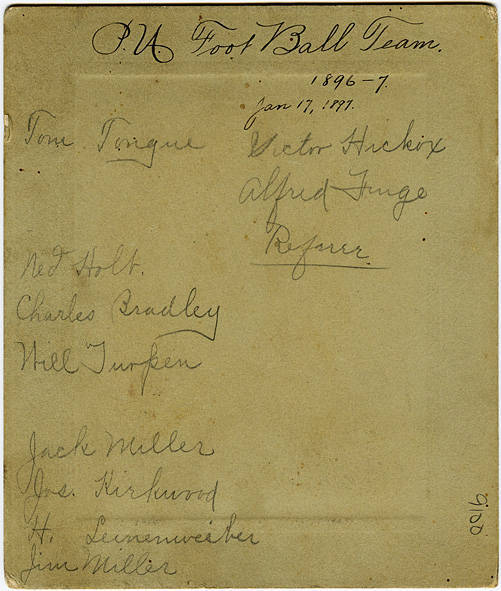 P.U. Foot Ball Team.
1896-7.
Jan 17, 1897.
Tom Tongue
Victor Hickox
Alfred Finge
Referer.
Ned Holt.
Charles Bradley
Will Turpen
Jack Miller
Jos. Kirkwood
H. Leinenweiber
Jim Miller
9100